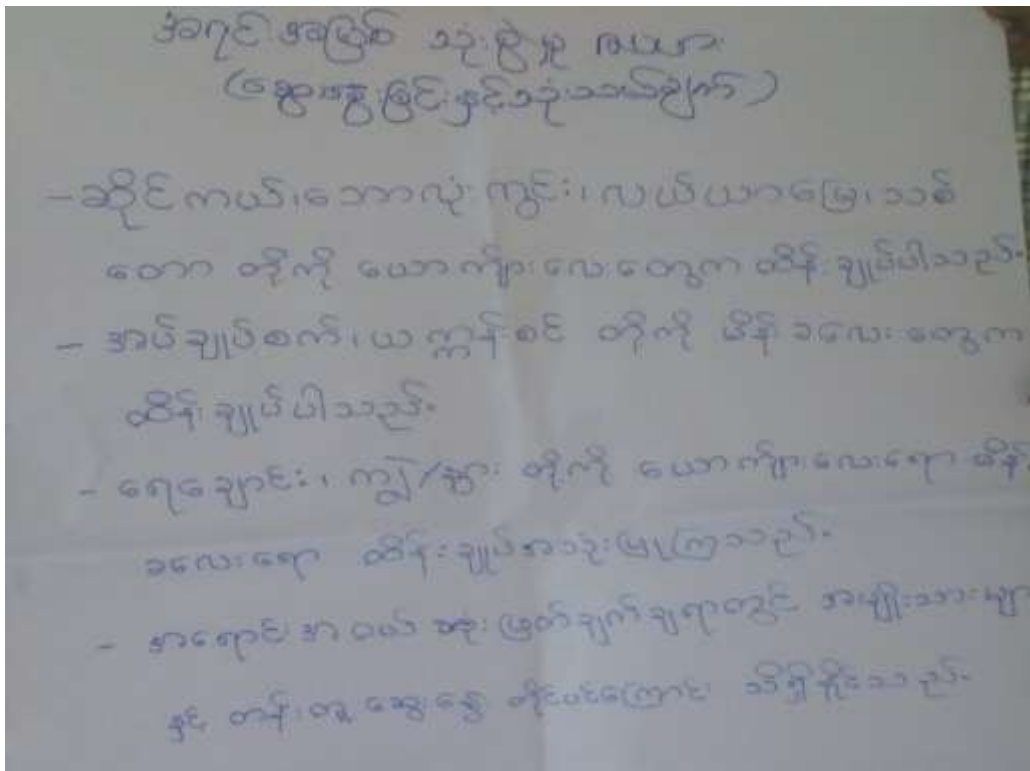 အရင်းအမြစ် သုံးစွဲမှု ဇယား
(ဆွေးနွေးခြင်းနှင့်သုံးသပ်ချက်)
- ဆိုင်ကယ်၊ဘောလုံးကွင်း၊လယ်ယာမြေ၊သစ်
တော တို့ကို ယောက်ျားလေးတွေက ထိန်းချုပ်ပါသည်။
- အပ်ချုပ်စက်၊ယက္ကန်းစင် တို့ကို မိန်းခလေးတွေက
ထိန်းချုပ်ပါသည်။
- ရေချောင်း၊ကျွဲ/နွား တို့ကို ယောက်ျားလေးရော မိန်း
ခလေးရော ထိန်းချုပ်အသုံးပြုကြသည်။
- အရောင်းအဝယ် ဆုံးဖြတ်ချက်ချရာတွင် အမျိုးသားများ
နှင့် တန်းတူ ဆွေးနွေ တိုင်ပင်ကြောင်း သိရှိနိုင်သည်။